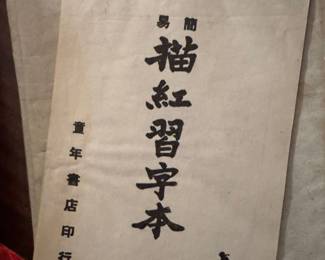 簡易
描紅習字本
童年書店印行